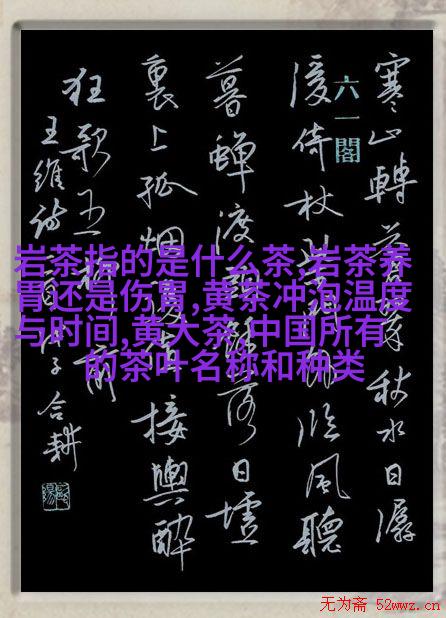 六一閣
寒山轉蒼翠秋水日潺
湲倚杖柴門外臨風聽
暮蟬渡頭餘落日墟
裏上孤烟復值接輿醉
狂歌五柳前
王維詩一首 合耕
岩茶指的是什么茶,岩茶养
胃还是伤胃,黄茶冲泡温度
与时间,黄大茶,中国所有
的茶叶名称和种类
无为斋 52wwz.cn